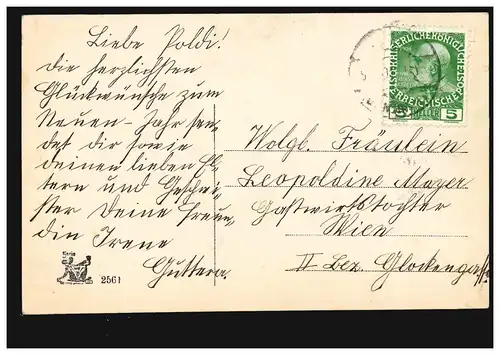 Liebe Poldi!
die herzlichsten
Glückwünsche zum
Neuen-Jahr sen-
det dir sowie
deinen lieben El-
tern und Geschwi-
ster Deine Freun-
din Irene
Guttera.
2561
KAISERLICHE KÖNIGLICHE
ÖSTERREICHISCHE
5 HELLER 5
Wolgl. Fräulein
Leopoldine Mayer
Gastwirtstochter
Wien
II Bez. Glockengasse